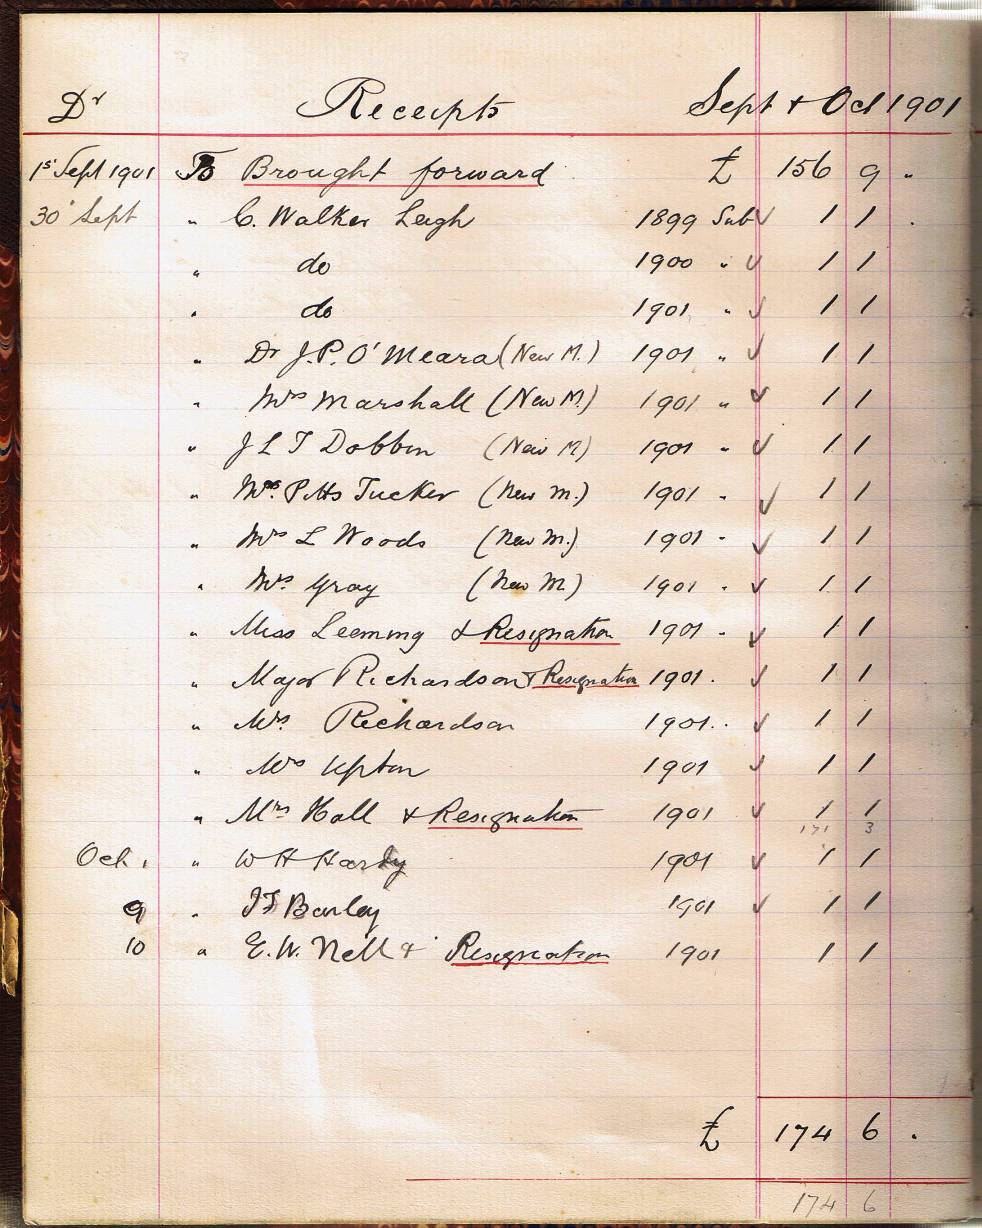 Dr Receipts Sept & Oct 1901
1st Sept 1901 To Brought forward £ 156 9 "
30 Sept " C. Walker Leigh 1899 Sub ✓ 1 1 .
" do 1900 " ✓ 1 1
" do 1901 " ✓ 1 1
" Dr J.P. O'Meara (New M.) 1901 " ✓ 1 1
" Mrs Marshall (New M.) 1901 " ✓ 1 1
" J L T Dobbin (New M) 1901 " ✓ 1 1
" Mrs. Pitts Tucker (New M.) 1901 " ✓ 1 1
" Mrs L Woods (New M.) 1901 " ✓ 1 1
" Mrs Gray (New M) 1901 " ✓ 1 1
" Miss Leeming & Resignation 1901 " ✓ 1 1
" Major Richardson & Resignation 1901 . ✓ 1 1
" Mrs Richardson 1901 . . ✓ 1 1
" Mrs Upton 1901 ✓ 1 1
" Mrs Hall & Resignation 1901 ✓ 1 1
171 3
Oct 1 " W H Hardy 1901 ✓ 1 1
9 " Barley 1901 ✓ 1 1
10 " E. W. Nell & Resignation 1901 1 1
£ 174 6 .
174 6